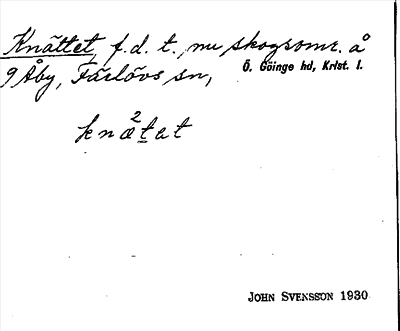 Knättet, f.d. t., nu skogsomr. å
9 Åby, Färlövs sn,
Ö. Göinge hd, Krist. l.
knä²tat
JOHN SVENSSON 1930